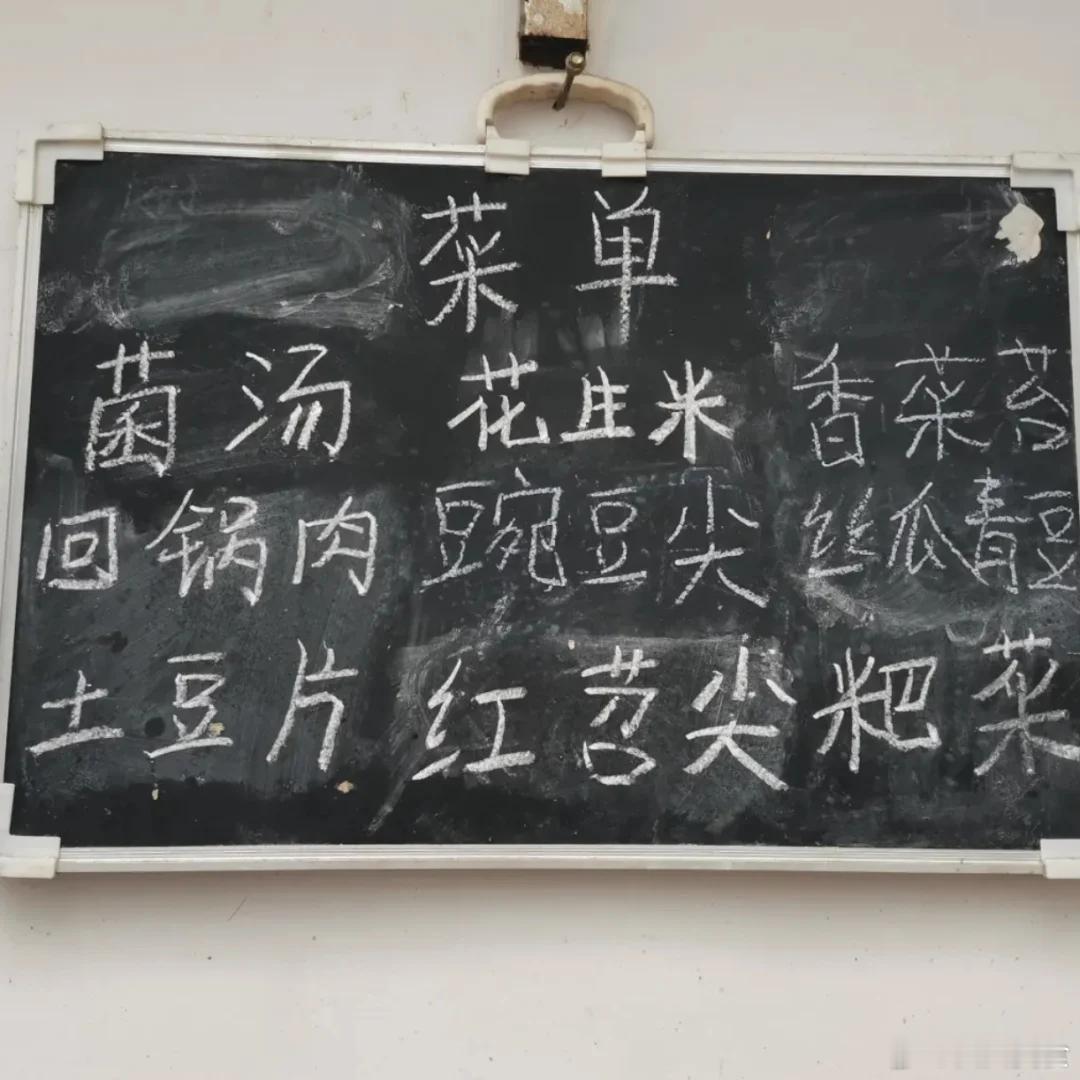 菜单
菌汤 花庄米 香菜苔
回锅肉 豌豆尖 丝瓜青豆
土豆片 红苕尖 粑菜